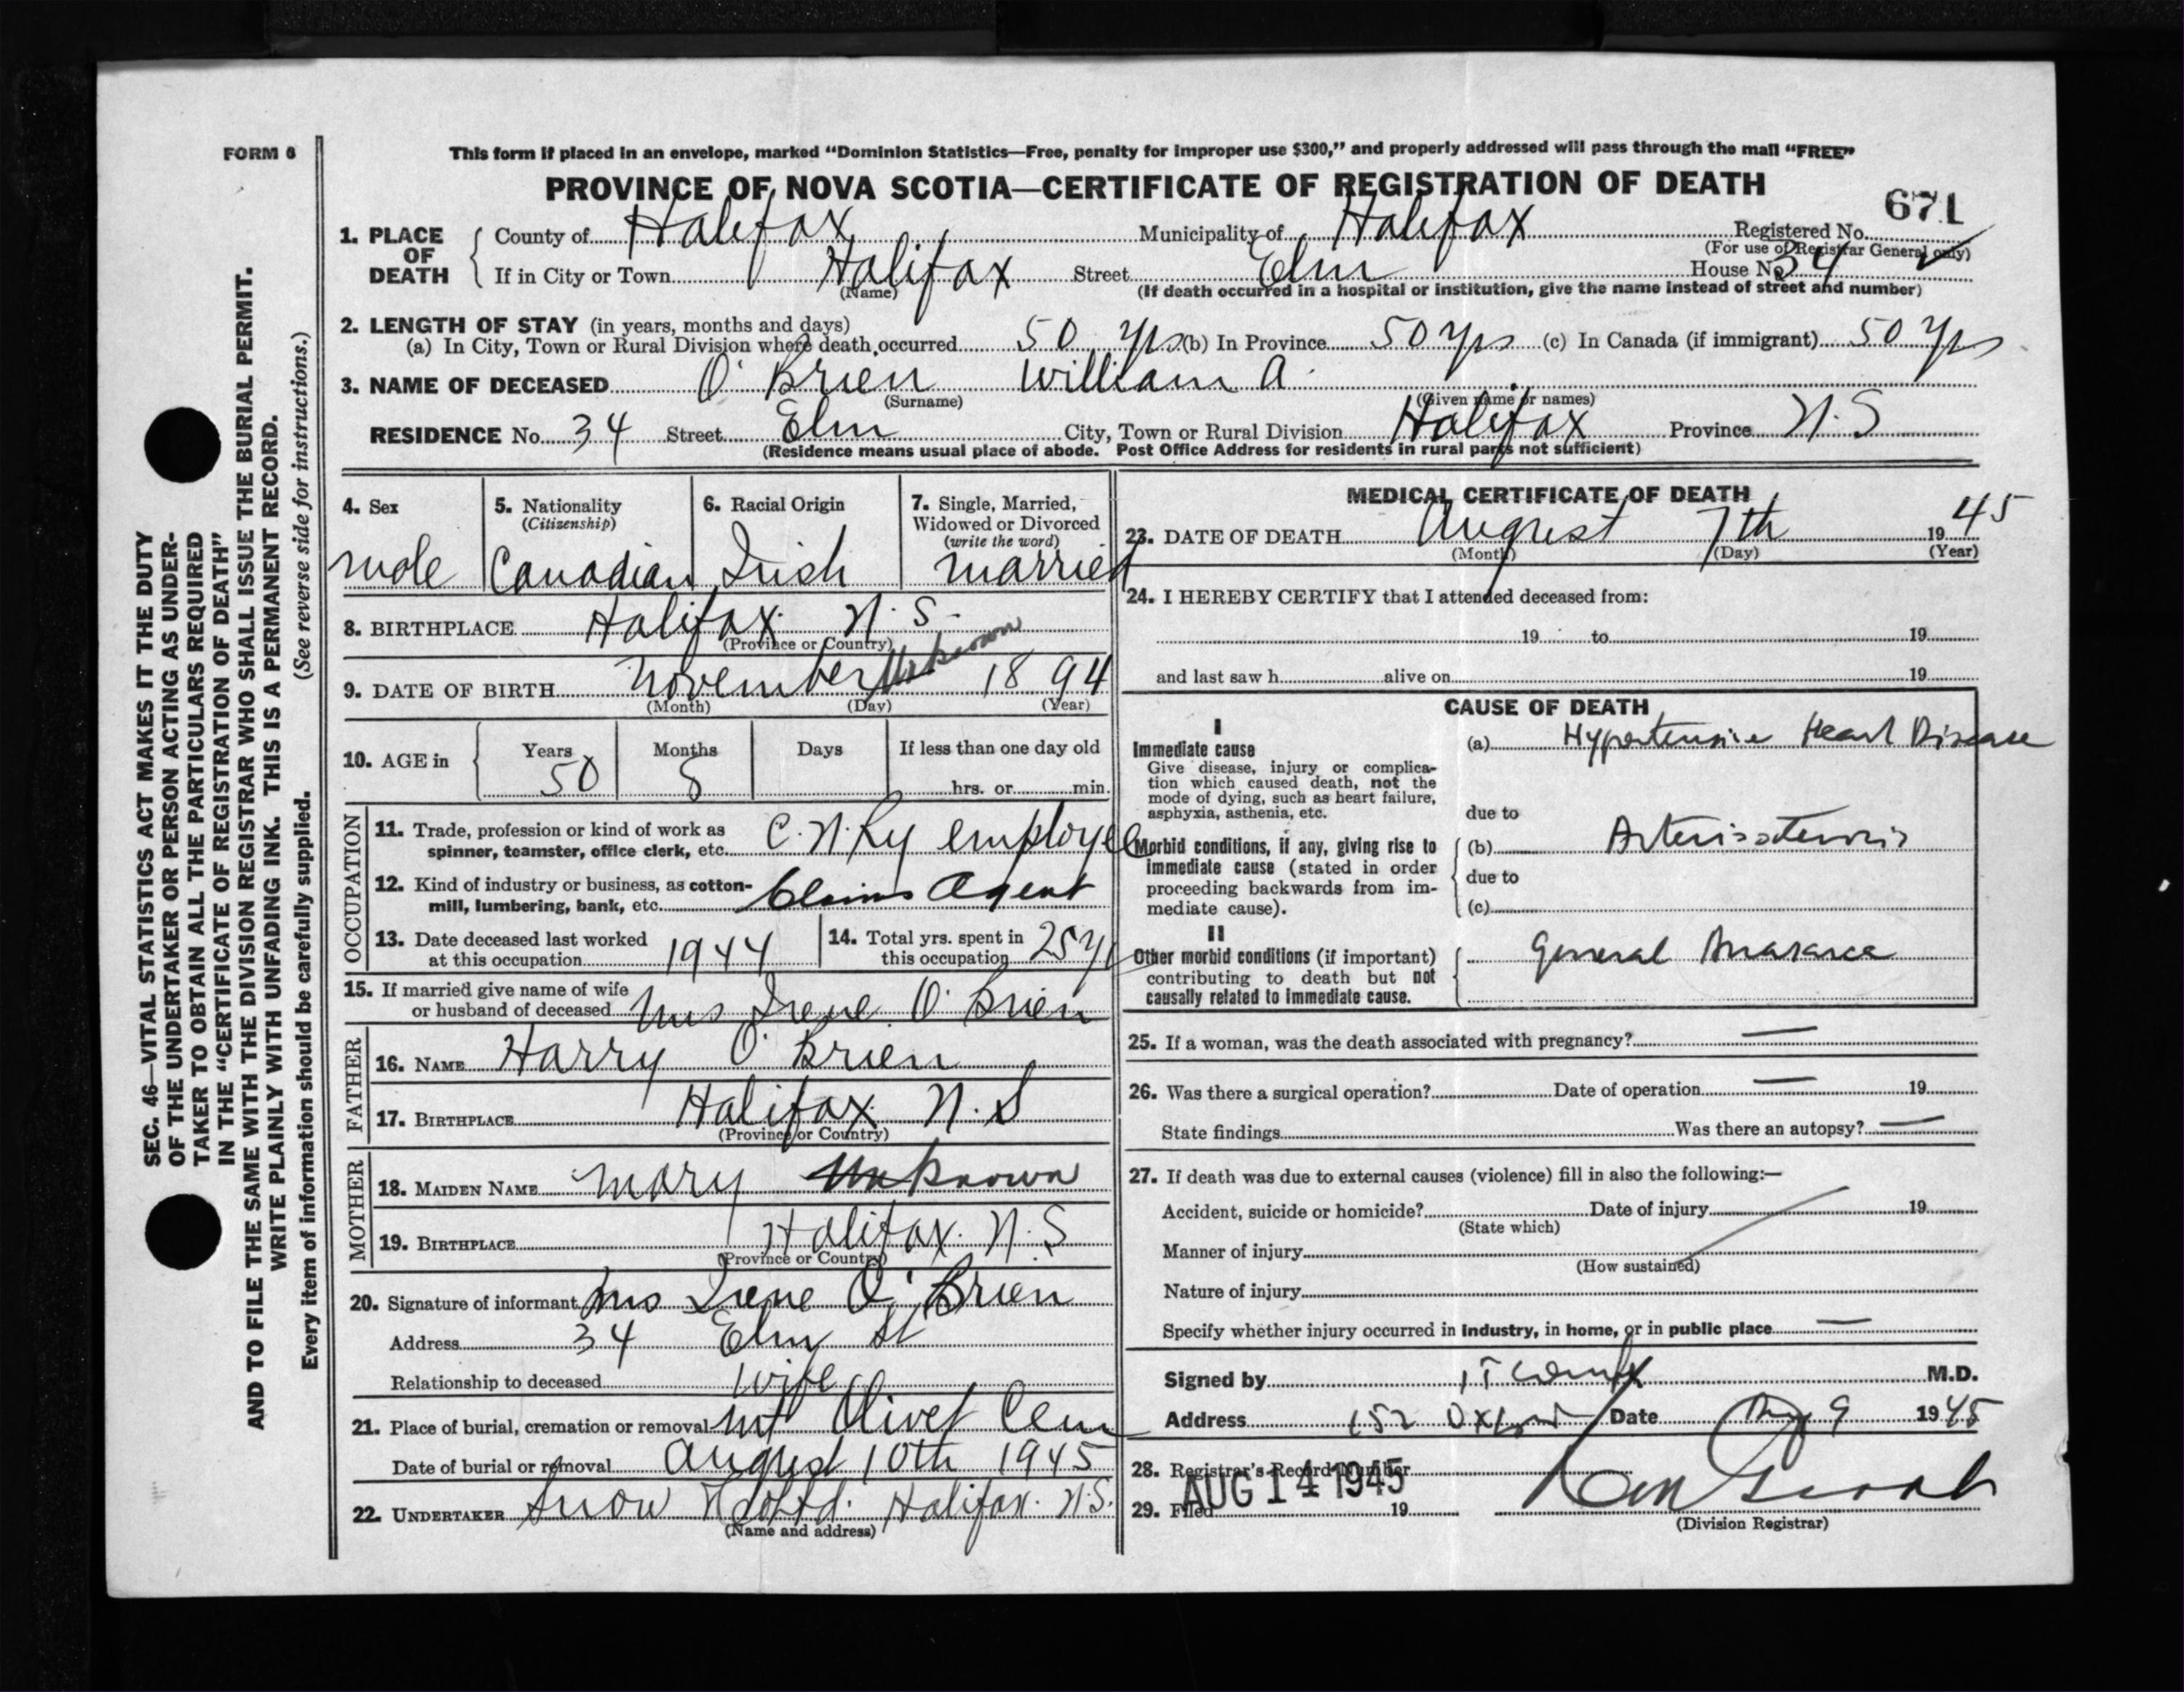 FORM 6
This form if placed in an envelope, marked “Dominion Statistics—Free, penalty for improper use $300,” and properly addressed will pass through the mail “FREE”
PROVINCE OF NOVA SCOTIA—CERTIFICATE OF REGISTRATION OF DEATH
671
1. PLACE OF DEATH
County of Halifax Municipality of Halifax Registered No.
(For use of Registrar General only)
If in City or Town Halifax Street Elm House No. 34
(Name) (If death occurred in a hospital or institution, give the name instead of street and number)
2. LENGTH OF STAY (in years, months and days)
(a) In City, Town or Rural Division where death occurred 50 yrs (b) In Province 50 yrs (c) In Canada (if immigrant) 50 yrs
3. NAME OF DECEASED O'Brien William A.
(Surname) (Given name or names)
RESIDENCE No. 34 Street Elm City, Town or Rural Division Halifax Province N.S
(Residence means usual place of abode. Post Office Address for residents in rural parts not sufficient)
4. Sex
male
5. Nationality
(Citizenship)
Canadian
6. Racial Origin
Irish
7. Single, Married,
Widowed or Divorced
(write the word)
married
8. BIRTHPLACE Halifax N.S.
(Province or Country)
9. DATE OF BIRTH November Unknown 1894
(Month) (Day) (Year)
10. AGE in Years 50 Months 8 Days If less than one day old
hrs. or min.
OCCUPATION
11. Trade, profession or kind of work as
spinner, teamster, office clerk, etc. C.N.Ry employee
12. Kind of industry or business, as cotton-
mill, lumbering, bank, etc. Claims Agent
13. Date deceased last worked
at this occupation 1944
14. Total yrs. spent in
this occupation 25 yr
15. If married give name of wife
or husband of deceased Mrs Irene O'Brien
FATHER
16. NAME Harry O'Brien
17. BIRTHPLACE Halifax N.S
(Province or Country)
MOTHER
18. MAIDEN NAME Mary Unknown
19. BIRTHPLACE Halifax. N.S
(Province or Country)
20. Signature of informant Mrs Irene O'Brien
Address 34 Elm St
Relationship to deceased wife
21. Place of burial, cremation or removal Mt Olivet Cem
Date of burial or removal August 10th 1945
22. UNDERTAKER Snow Ltd. Halifax. N.S.
(Name and address)
MEDICAL CERTIFICATE OF DEATH
23. DATE OF DEATH August 7th 1945
(Month) (Day) (Year)
24. I HEREBY CERTIFY that I attended deceased from:
19 to 19
and last saw h alive on 19
CAUSE OF DEATH
I
Immediate cause
Give disease, injury or complica-
tion which caused death, not the
mode of dying, such as heart failure,
asphyxia, asthenia, etc.
(a) Hypertensive Heart Disease
due to
Morbid conditions, if any, giving rise to
immediate cause (stated in order
proceeding backwards from im-
mediate cause).
(b)
due to
(c)
II
Other morbid conditions (if important)
contributing to death but not
causally related to immediate cause.
General Anasarca
25. If a woman, was the death associated with pregnancy? —
26. Was there a surgical operation? Date of operation — 19
State findings Was there an autopsy? —
27. If death was due to external causes (violence) fill in also the following:—
Accident, suicide or homicide? Date of injury 19
(State which)
Manner of injury
(How sustained)
Nature of injury
Specify whether injury occurred in industry, in home, or in public place —
Signed by M.D.
Address 152 Oxford Date Aug 9 1945
28. Registrar's Record Number
AUG 14 1945
29. Filed 19
(Division Registrar)
SEC. 46—VITAL STATISTICS ACT MAKES IT THE DUTY
OF THE UNDERTAKER OR PERSON ACTING AS UNDER-
TAKER TO OBTAIN ALL THE PARTICULARS REQUIRED
IN THE “CERTIFICATE OF REGISTRATION OF DEATH”
AND TO FILE THE SAME WITH THE DIVISION REGISTRAR WHO SHALL ISSUE THE BURIAL PERMIT.
WRITE PLAINLY WITH UNFADING INK. THIS IS A PERMANENT RECORD.
Every item of information should be carefully supplied. (See reverse side for instructions.)